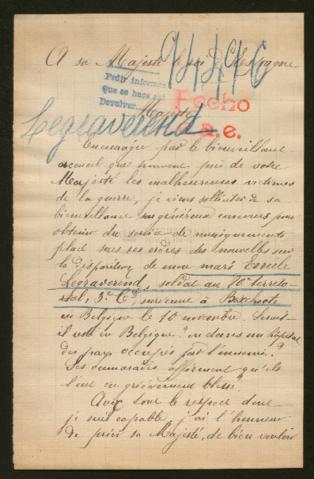 A sa Majesté le roi d'Espagne
94446
Pedir informes
que se hace así
Devolver
Majesté
Fecho
a.e.
Legraverend
Encouragée par le bienveillant
accueil que trouvent près de votre
Majesté les malheureuses victimes
de la guerre, je viens solliciter de sa
bienveillance un généreux concours pour
obtenir du service de renseignements
placé sous ses ordres des nouvelles sur
la disparition de mon mari Emile
Legraverend, soldat au 76e territo-
rial, 3e Cie survenue à Bixchoote
en Belgique le 10 novembre. Serait-
il resté en Belgique? ou dans un hôpital
des pays occupés par l'ennemi?
Ses camarades affirment qu'ils
l'ont vu grièvement blessé.
Avec tout le respect dont
je suis capable, j'ai l'honneur
de prier sa Majesté, de bien vouloir